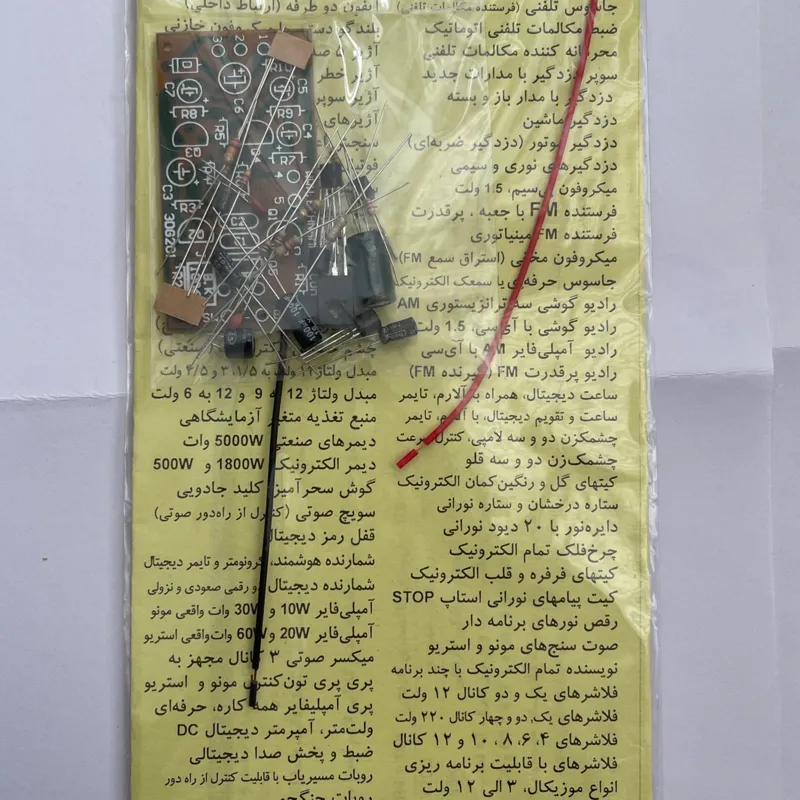 جاسوس تلفنی (فرستنده مکالمات تلفنی)
ضبط مکالمات تلفنی اتوماتیک
محرمانه کننده مکالمات تلفنی
سوپر دزدگیر با مدارات جدید
دزدگیر با مدار باز و بسته
دزدگیر ماشین
دزدگیر موتور (دزدگیر ضربه‌ای)
دزدگیرهای نوری و سیمی
میکروفون بی‌سیم، 1.5 ولت
فرستنده FM با جعبه ، پرقدرت
فرستنده FM مینیاتوری
میکروفون مخفی (استراق سمع FM)
جاسوس حرفه‌ای یا سمعک الکترونیک
رادیو گوشی سه ترانزیستوری AM
رادیو گوشی با آی‌سی، 1.5 ولت
رادیو آمپلی‌فایر AM با آی‌سی
رادیو پرقدرت FM (گیرنده FM)
ساعت دیجیتال، همراه با آلارم، تایمر
ساعت و تقویم دیجیتال، با آلارم، تایمر
چشمک‌زن دو و سه لامپی، کنترل سرعت
چشمک‌زن دو و سه قلو
کیتهای گل و رنگین‌کمان الکترونیک
ستاره درخشان و ستاره نورانی
دایره‌نور با ۲۰ دیود نورانی
چرخ‌فلک تمام الکترونیک
کیتهای فرفره و قلب الکترونیک
کیت پیامهای نورانی استاپ STOP
رقص نورهای برنامه دار
صوت سنج‌های مونو و استریو
نویسنده تمام الکترونیک با چند برنامه
فلاشرهای یک و دو کانال ۱۲ ولت
فلاشرهای یک، دو و چهار کانال ۲۲۰ ولت
فلاشرهای ۴، ۶، ۸ ، ۱۰ و ۱۲ کانال
فلاشرهای با قابلیت برنامه ریزی
انواع موزیکال، ۳ الی ۱۲ ولت
آیفون دو طرفه (ارتباط داخلی)
میکروفون خازنی
آژیر ۵
آژیر خطر
آژیر سوپر
آژیرهای
مبدل ولتاژ ۱۲ به ۱/۵، ۳ و ۴/۵ ولت
مبدل ولتاژ 12 به 9 و 12 به 6 ولت
منبع تغذیه متغیر آزمایشگاهی
دیمرهای صنعتی 5000W وات
دیمر الکترونیک 1800W و 500W
گوش سحرآمیز، کلید جادویی
سویچ صوتی (کنترل از راه‌دور صوتی)
قفل رمز دیجیتال
شمارنده هوشمند، کرونومتر و تایمر دیجیتال
شمارنده دیجیتال دو رقمی صعودی و نزولی
آمپلی‌فایر 10W و 30W وات واقعی مونو
آمپلی‌فایر 20W و 60W وات‌واقعی استریو
میکسر صوتی ۳ کانال مجهز به
پری پری تون‌کنترل مونو و استریو
پری آمپلیفایر همه کاره، حرفه‌ای
ولت‌متر، آمپرمتر دیجیتال DC
ضبط و پخش صدا دیجیتالی
روبات مسیریاب با قابلیت کنترل از راه دور
روبات جنگجو
R10
C5
C6
R9
C4
R8
R5
R7
Q3
C3
R3
306201